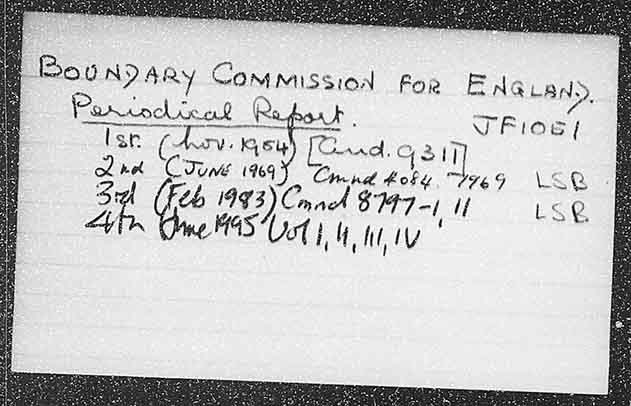 BOUNDARY COMMISSION FOR ENGLAND.
Periodical Report. JF1051
1st. (Nov. 1954) [Cmd. 9311]
2nd (JUNE 1969) Cmnd 4084. 1969 LSB
3rd (Feb 1983) Cmnd 8797-I, II LSB
4th June 1995 Vol I, II, III, IV